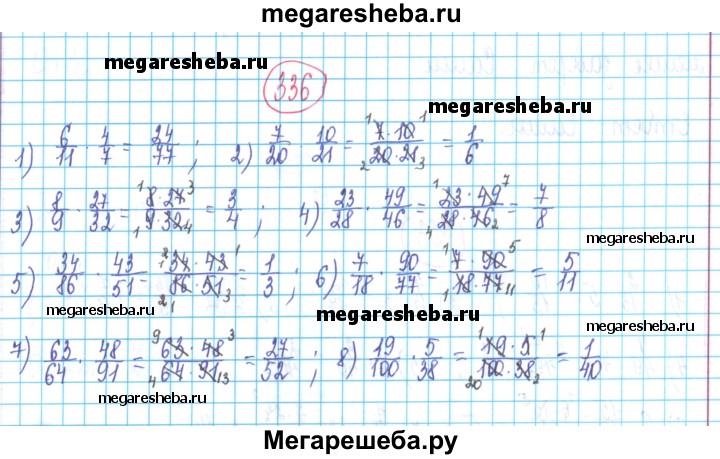 megaresheba.ru
megaresheba.ru
336
megaresheba.ru
1) 6/11 · 4/7 = 24/77 ; 2) 7/20 · 10/21 = 7·10/20·21 = 1/6
megaresheba.ru
3) 8/9 · 27/32 = 8·27/9·32 = 3/4 ; 4) 23/28 · 49/46 = 23·49/28·46 = 7/8
megaresheba.ru
5) 34/86 · 43/51 = 34·43/86·51 = 1/3 ; 6) 7/18 · 90/77 = 7·90/18·77 = 5/11
megaresheba.ru
megaresheba.ru
megaresheba.ru
7) 63/64 · 48/91 = 63·48/64·91 = 27/52 ; 8) 19/100 · 5/38 = 19·5/100·38 = 1/40
megaresheba.ru
megaresheba.ru
Мегарешеба.ру